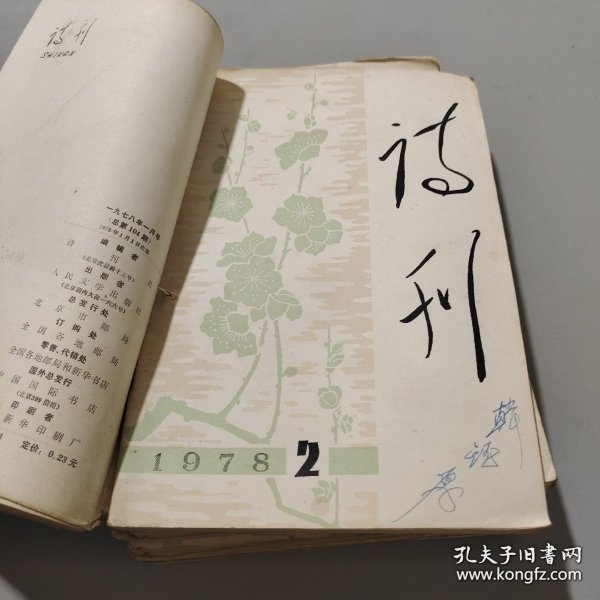 诗刊
SHIKAN
一九七八年一月号
(总第104期)
1978年1月1日出版
编辑者
诗刊社
出版者
人民文学出版社
总发行处
北京市邮局
订购处
全国各地邮局
零售、代销处
全国各地邮局和新华书店
国外总发行
中国国际书店
(北京399信箱)
印刷者
新华印刷厂
定价：0.23元
诗刊
1978 2
孔夫子旧书网
www.kongfz.com